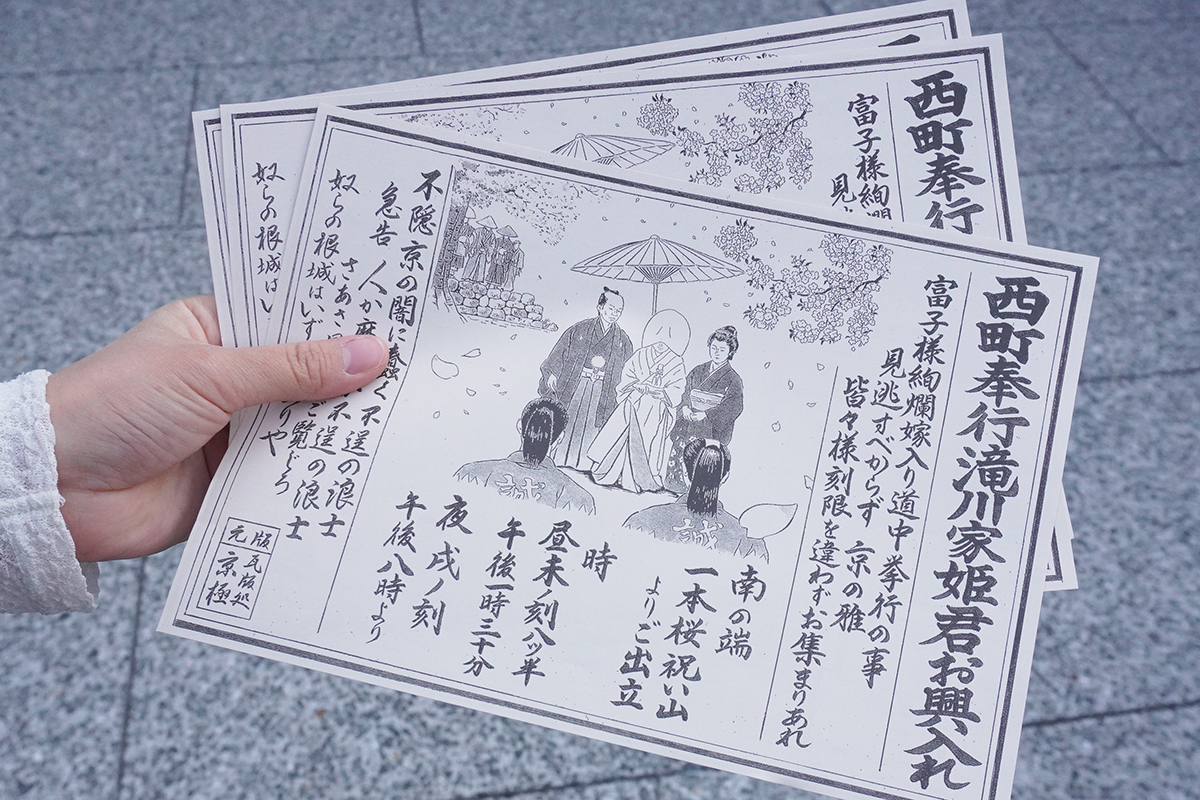 西町奉行滝川家姫君お興入れ
富子様絢爛嫁入り道中挙行の事
見逃すべからず 京の雅
皆々様刻限を違わずお集まりあれ
南の端
一本桜祝い山
よりご出立
時
昼未ノ刻八ッ半
午後一時三十分
夜戌ノ刻
午後八時より
不隠京の闇に蠢く不逞の浪士
急告 人か
不逞の浪士
さあさ
ご覧どろ
奴らの根城はいず
りや
瓦版処
京極
元版
誠
誠
西町奉行
富子様絢爛
見
奴らの根城はい